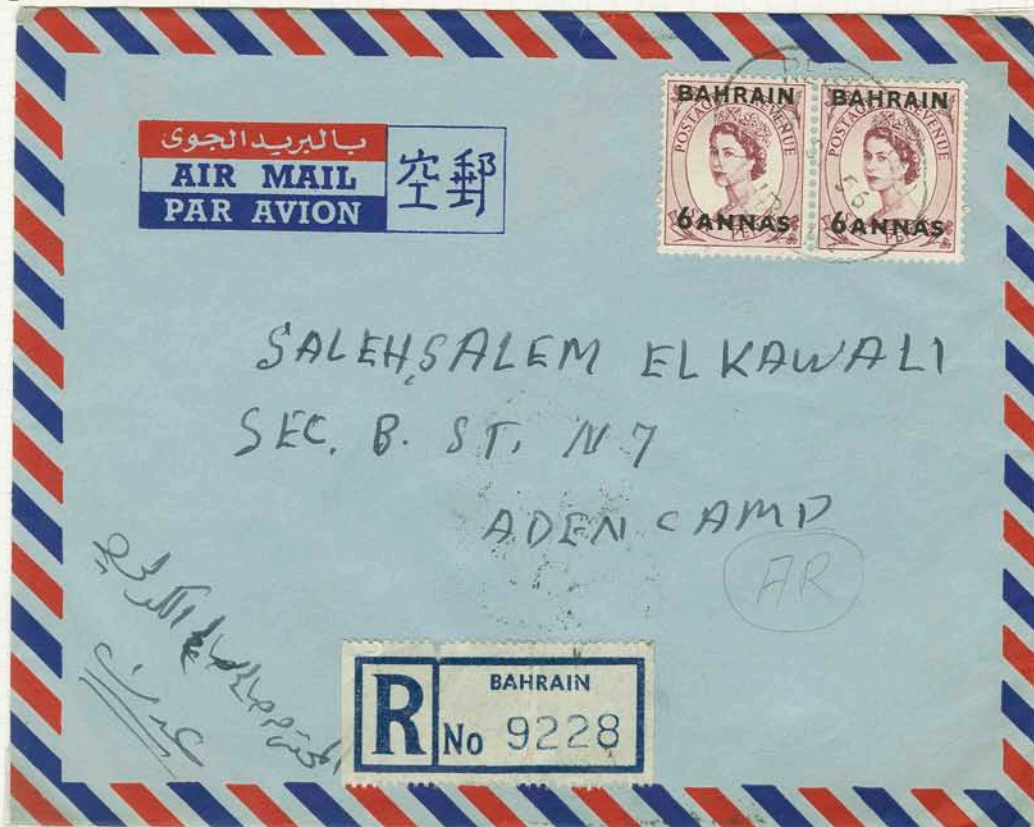 بالبريد الجوى
AIR MAIL
PAR AVION
空郵
BAHRAIN
POSTAGE REVENUE
6 ANNAS
BAHRAIN
POSTAGE REVENUE
6 ANNAS
56
SALEH SALEM EL KAWALI
SEC. B. ST. N 7
ADEN CAMP
AR
صالح سالم
عدن
R
BAHRAIN
No 9228